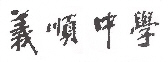 義順中學